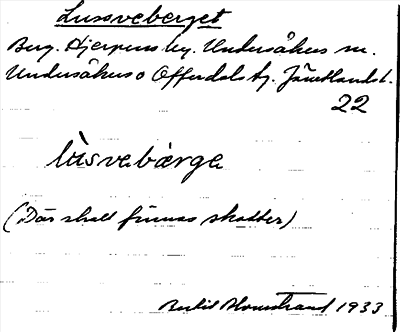 Lussveberget
Berg. Hjerpens by. Undersåkers sn.
Undersåkers o Offerdals tg. Jämtlands l.
22
lùsvebærge
(Där skall finnas skatter)
Bertil Blomstrand 1933